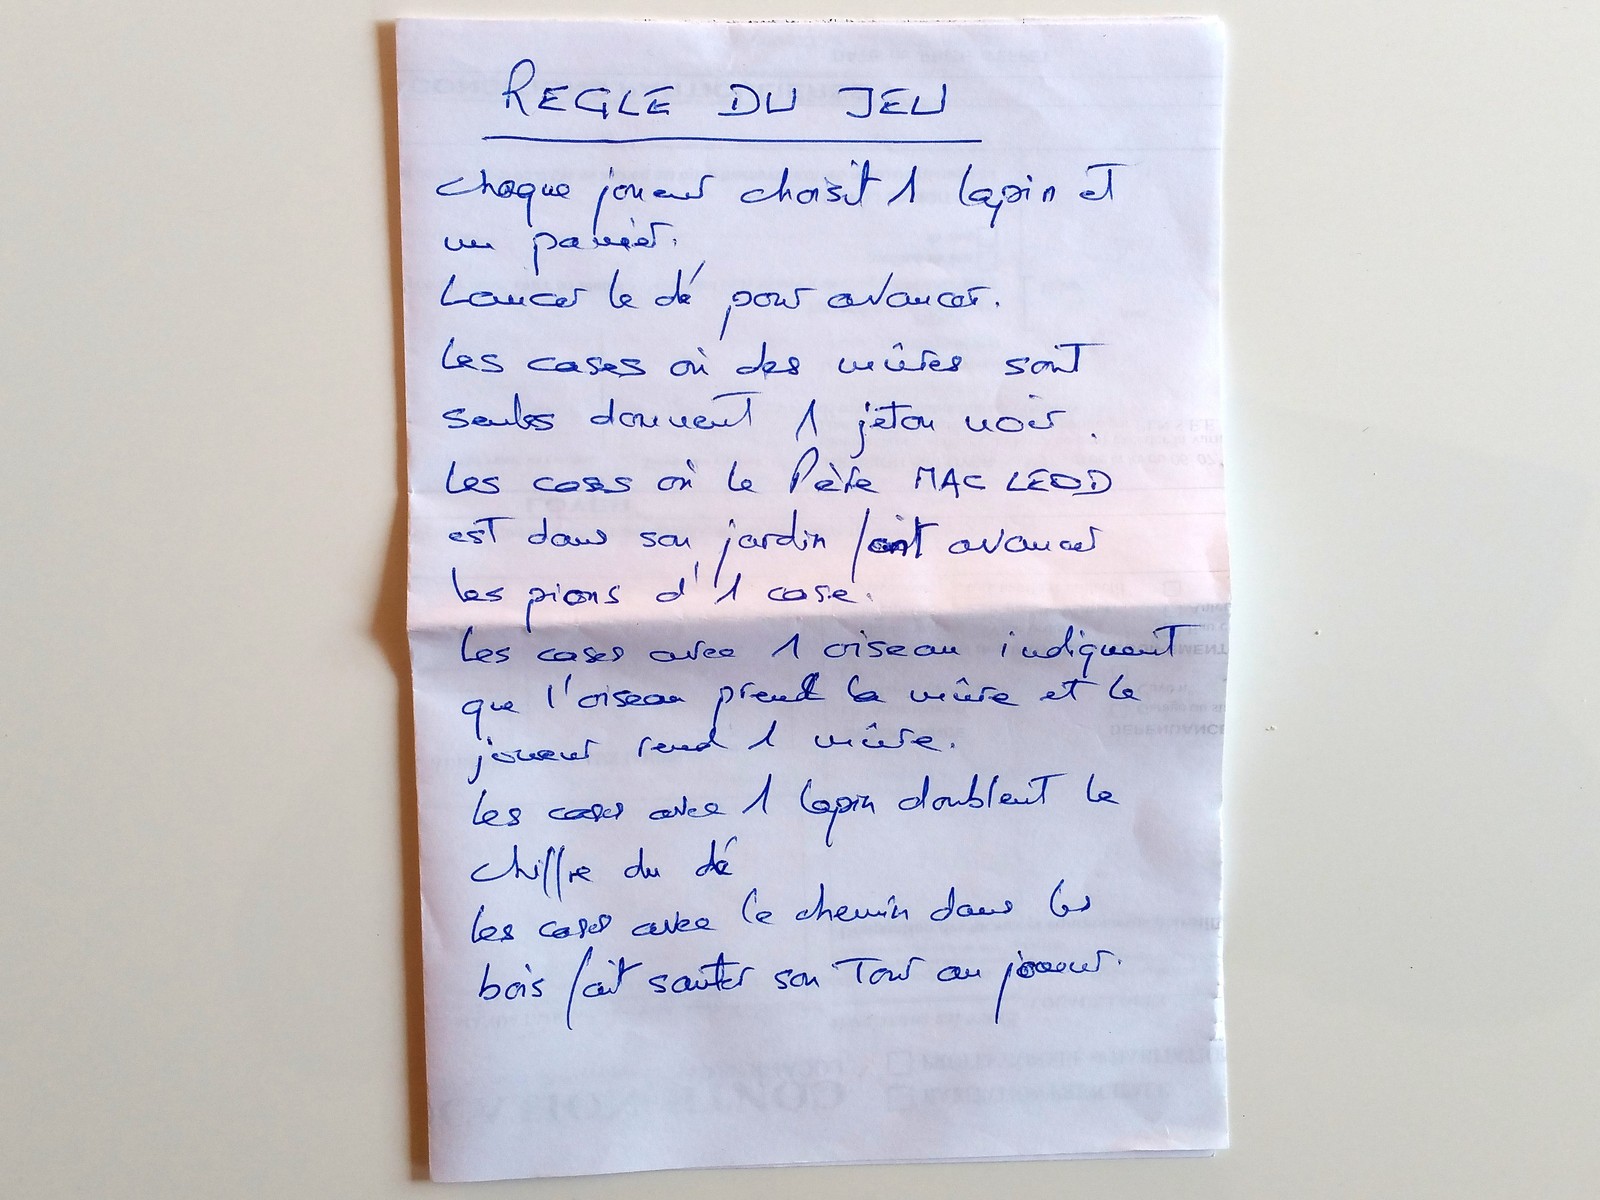 REGLE DU JEU
Chaque joueur choisit 1 lapin et
un panier.
Lancer le dé pour avancer.
Les cases où des mûres sont
seules donnent 1 jeton noir.
Les cases où le Père MAC LEOD
est dans son jardin font avancer
les pions d'1 case.
Les cases avec 1 oiseau indiquent
que l'oiseau prend la mûre et le
joueur rend 1 mûre.
Les cases avec 1 lapin doublent le
chiffre du dé
Les cases avec le chemin dans les
bois fait sauter son Tour au joueur.